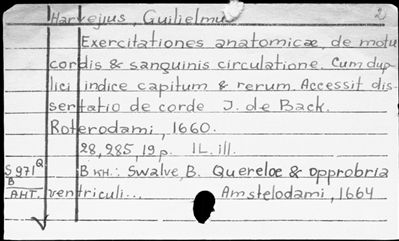 2
Harvejus, Guilielmus
Exercitationes anatomicæ, de motu
cordis & sanguinis circulatione. Cum dup-
lici indice capitum & rerum. Accessit dis-
sertatio de corde J. de Back.
Roterodami, 1660.
28, 285, 19 p. 1L. ill.
S971Q В кн.: Swalve, B. Quereloe & opprobria
B
АНТ. ventriculi... Amstelodami, 1664